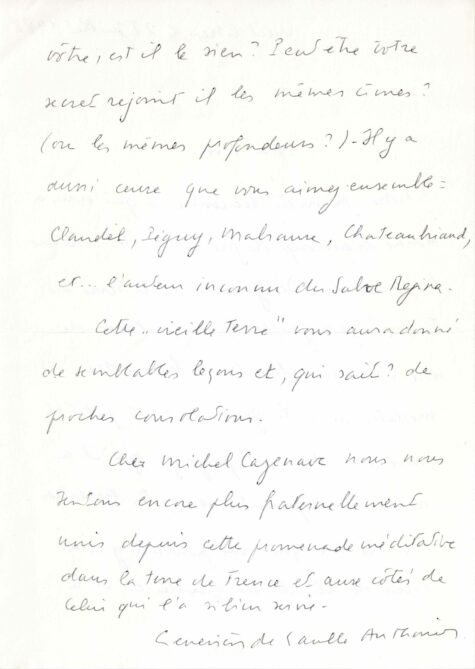 vôtre, est il le sien? Peut être votre
secret rejoint il les mêmes cimes?
(ou les mêmes profondeurs?) - Il y a
aussi ceux que vous aimez ensemble:
Claudel, Péguy, Malraux, Chateaubriand,
et... l'auteur inconnu du Salve Regina.
Cette "vieille Terre" vous aura donné
de semblables leçons et, qui sait? de
proches consolations.
Cher Michel Cazenave nous nous
sentons encore plus fraternellement
unis depuis cette promenade méditative
dans la terre de France et aux côtés de
Celui qui l'a si bien servie.
Geneviève de Gaulle Anthonioz